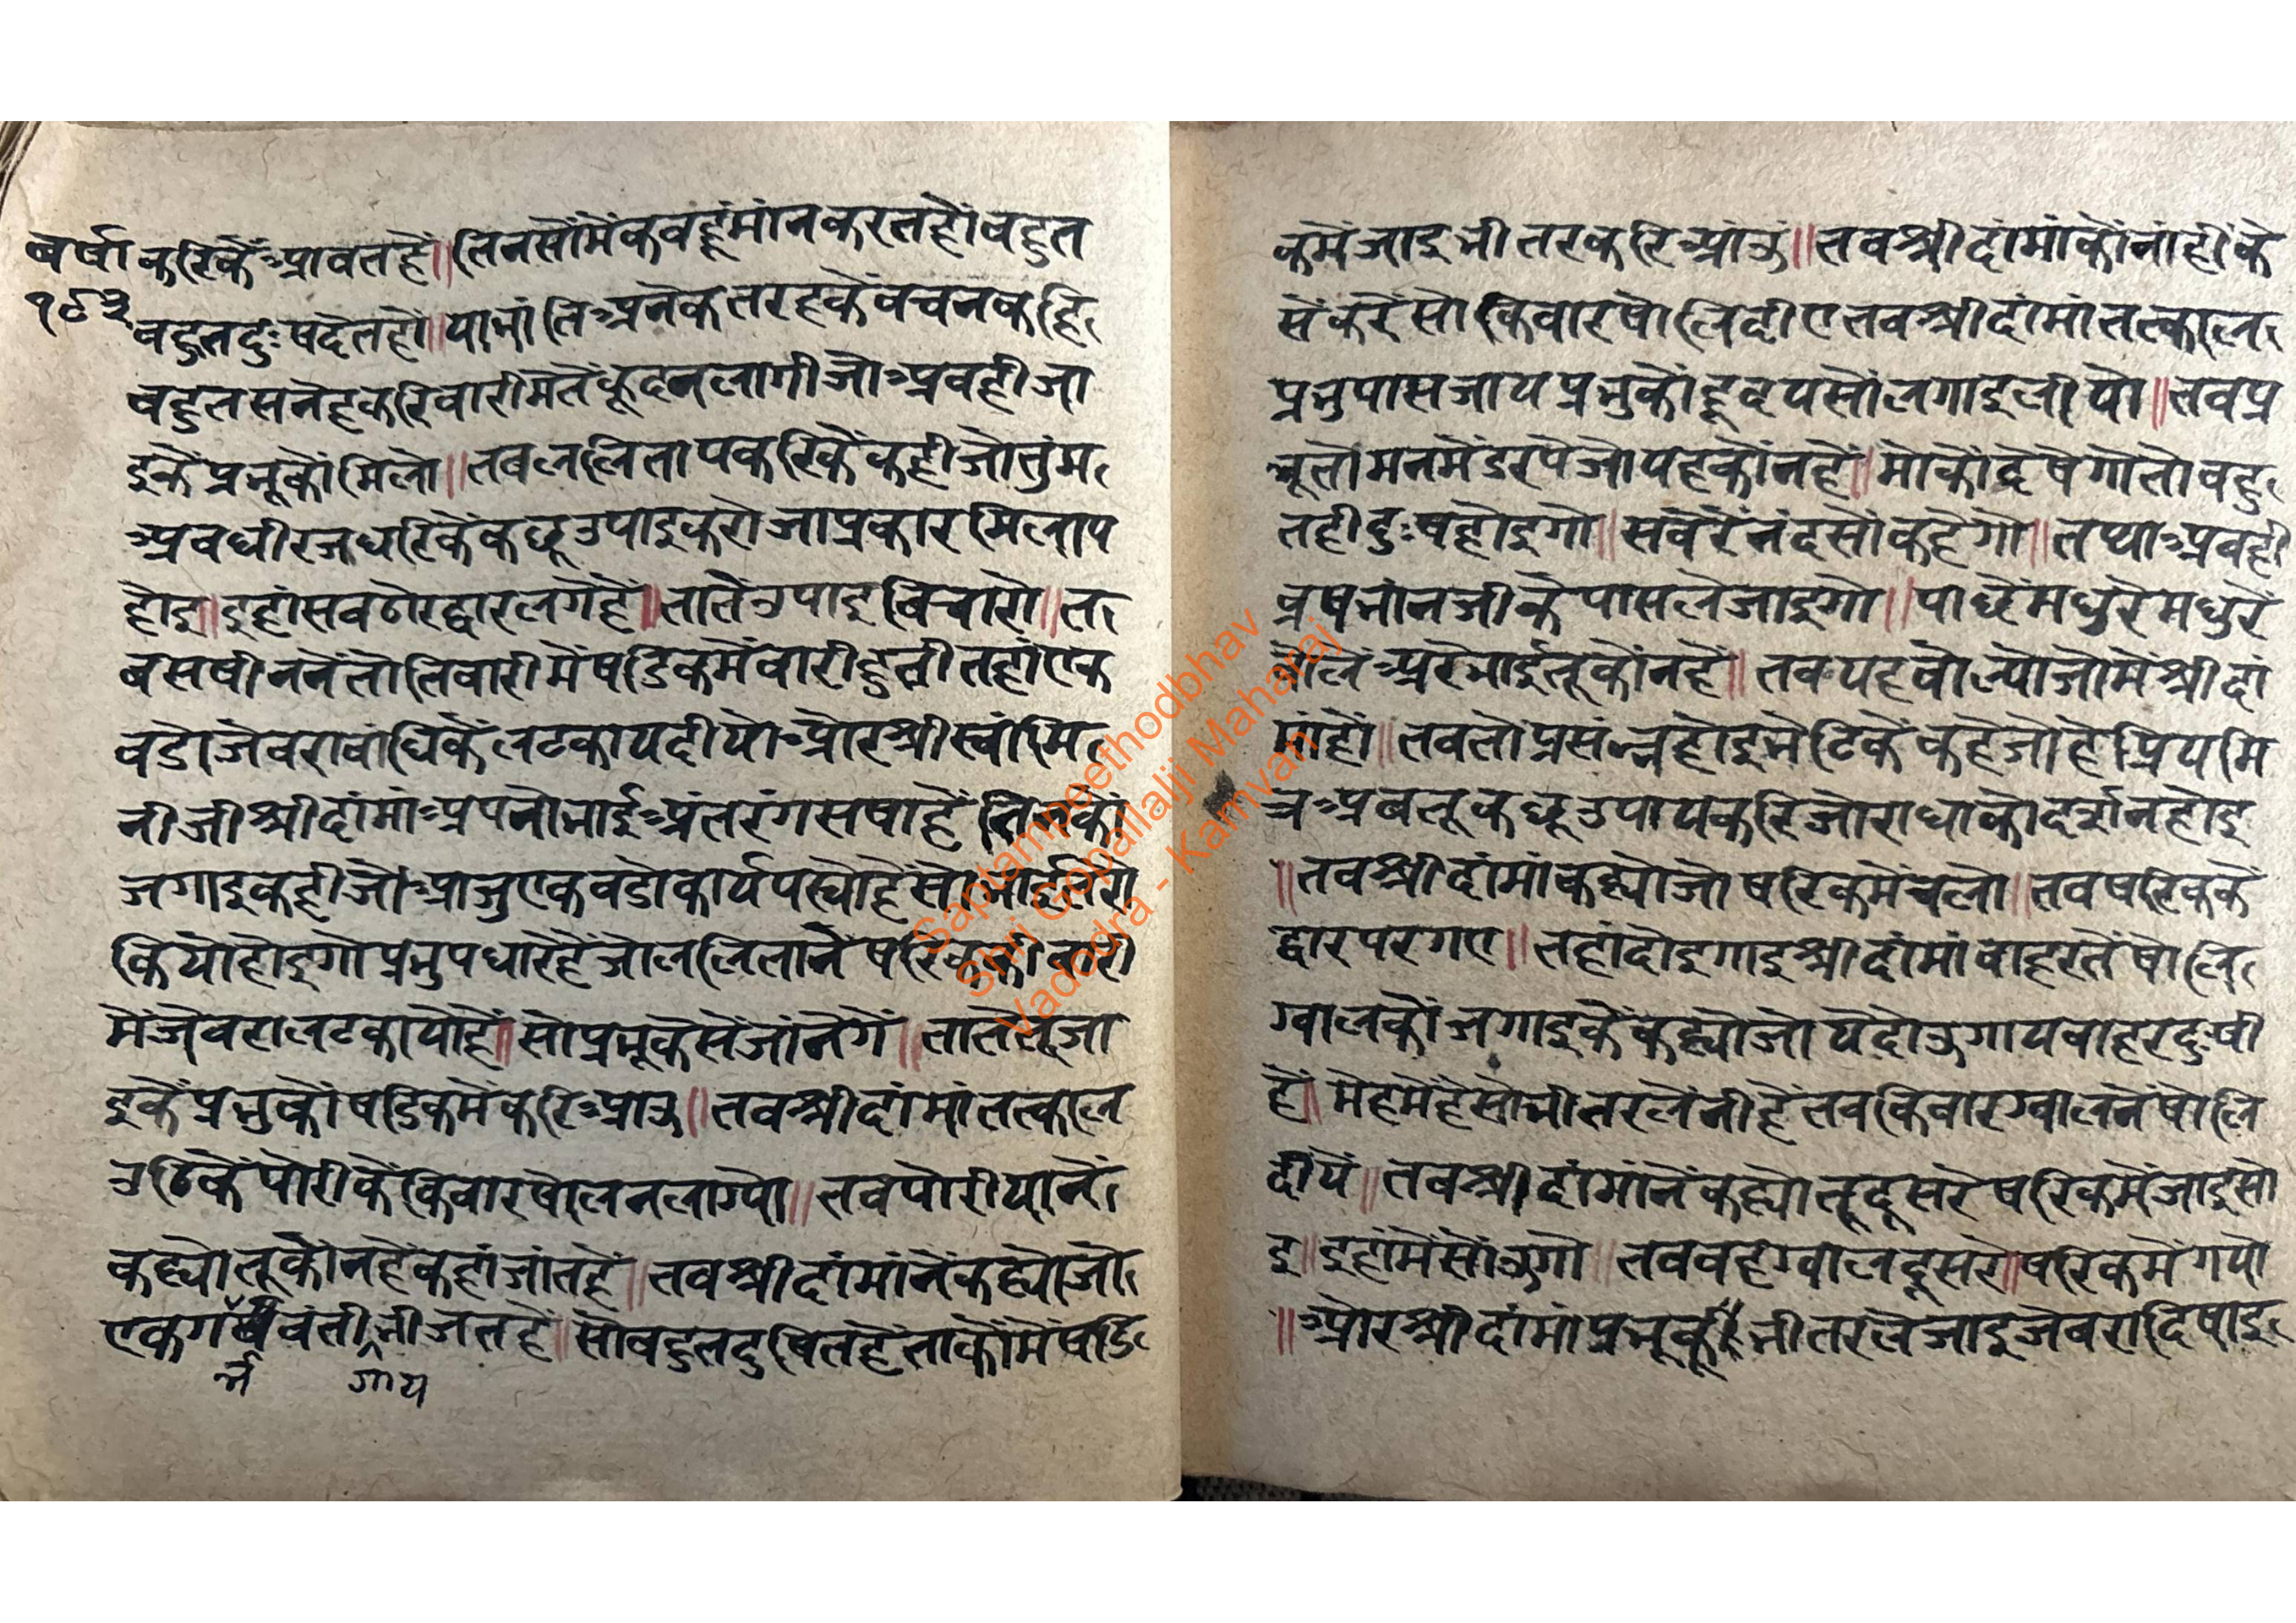 बर्षा
१८३
करिकैं आवतहैं॥ तिनसौंमैंकवहूंमांनकरतहौंबहुत
बहुतदुःषदेतहौं॥ याभांतिअनेकतरहकेवचनकहि
बहुतसनेहकरिवारीमेतेंकूदनलागीजोअवहीजा
इकेंप्रभूकौंमिलौ॥ तबललितापकरिकैंकहीजोतुंम
अवधीरजधरिकेंकछूउपाइकरोजाप्रकारमिलाप
होइ॥ इहांसवठोरद्वारलगेहैं॥ तातेंउपाइबिचारो॥ त
बसषीननेंतोतिवारीमेंषडिकमेंवारीहुतीतहांएक
वडोजेवरावांधिकेंलटकायदीयोऔरश्रीस्वांमि
नीजीश्रीदांमांअपनोभाईअंतरंगसषाहैंतिनकों
जगाइकहीजोआजुएकवडोकार्यपस्योहैंसोभाईतेरो
कियोहोइगोप्रभुपधारेहैंजोललितानेंषरिककीवारी
मेंजेवरालटकायोहैं॥ सोप्रभूकेसेंजांनेगें॥ तातेंतूजा
इकेंप्रभुकोंषडिकमेंकरिआउ॥ तवश्रीदांमांतत्काल
उठिकेंपोरीकेंकिवारषोलनलाग्यो॥ तवपोरीयानें
कह्योतूकोंनहेंकहांजांतहें॥ तवश्रीदांमांनेंकह्योजो
एकगर्षवंतीभीजतहें॥ सोबहुतदुषितहेंताकोंमेंषडि
र्भ गाय
कमेंजाइभीतरकरिआंऊ॥ तवश्रीदांमांकोंनांहींके
सेंकरेंसोकिवारषोलिदीएतवश्रीदांमांतत्काल
प्रभुपासजायप्रभुकोंहृदयसोंलगाइलीयो॥ तवप्र
भूतोमनमेंडरपेजोयहकोंनहें॥ मोकोंदेषेगोतोवहु
तहीदुःषहोइगो॥ सवेरेंनंदसोंकहेगो॥ तथाअवही
व्रषभांनजीकेपासलेजाइगो॥ पाछेंमधुरेमधुरे
वोलेंअरेभाईतूकोंनहें॥ तवयहवोल्योजोमेंश्रीदां
मांहों॥ तवतोप्रसंन्नहोइभेटिकेंकहेजोहेप्रियमि
त्रअवतूकछूउपायकरिजोराधाकोदर्शनहोइ
॥तवश्रीदांमांकह्योजोषरिकमेंचलो॥ तवषरिककें
द्वारपरगए॥ तहांदोइगाइश्रीदांमांवाहरतेंषोलि
ग्वालकोंजगाइकेंकह्योजोयेदोऊगायवाहरदुःषी
हें॥ मेहमेहेसोभीतरलेंनीहेंतवकिवारग्वालनेंषोलि
दीयें॥ तवश्रीदांमांनेंकह्योतूदूसरेषरिकमेंजाइसो
इ॥ इहांमेंसोंऊगो॥ तववहग्वालदूसरे॥षरिकमेंगयो
॥औरश्रीदांमांप्रभूकूंभीतरलेजाइजेवरादिषाइ